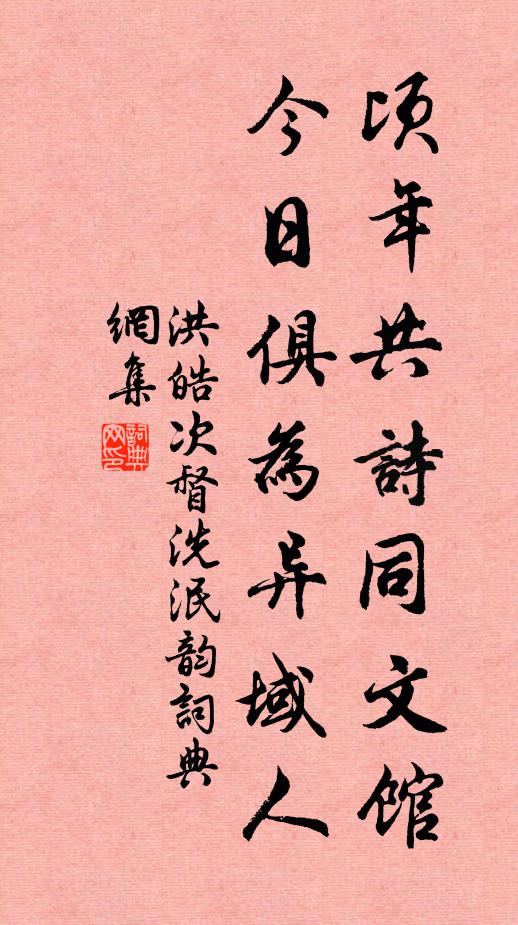 頃年共詩同文館
今日俱為异域人
洪皓次督洗泯韵詞典
網集
詞典
网印